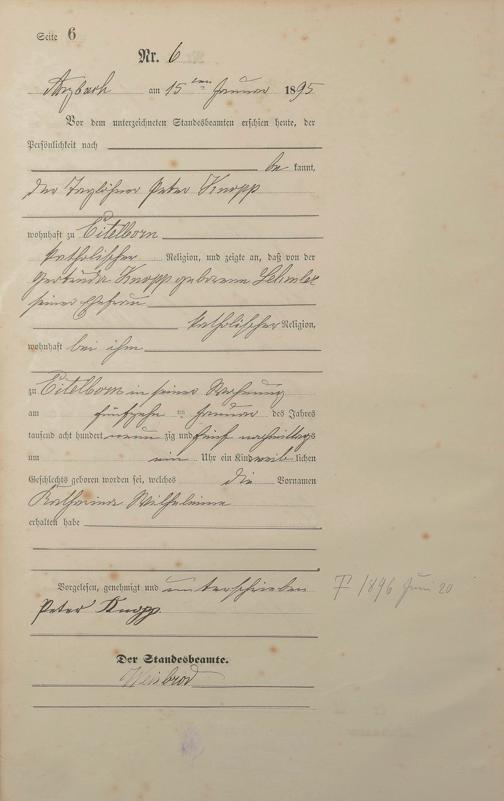 Seite 6
Nr. 6
Arzbach am 15ten Januar 1895
Vor dem unterzeichneten Standesbeamten erschien heute, der
Persönlichkeit nach
be kannt,
der Taglöhner Peter Knopp
wohnhaft zu Eitelborn
katholischer Religion, und zeigte an, daß von der
Gertrude Knopp geborene
seiner Ehefrau
katholischer Religion,
wohnhaft bei ihm
zu Eitelborn in seiner Wohnung
am fünfzehn ten Januar des Jahres
tausend acht hundert neun zig und fünf nachmittags
um ein Uhr ein Kind weib lichen
Geschlechts geboren worden sei, welches die Vornamen
Katharina Wilhelmina
erhalten habe
Vorgelesen, genehmigt und unterschrieben
Peter Knopp
† 1896 Juni 20
Der Standesbeamte.
Weisbrod